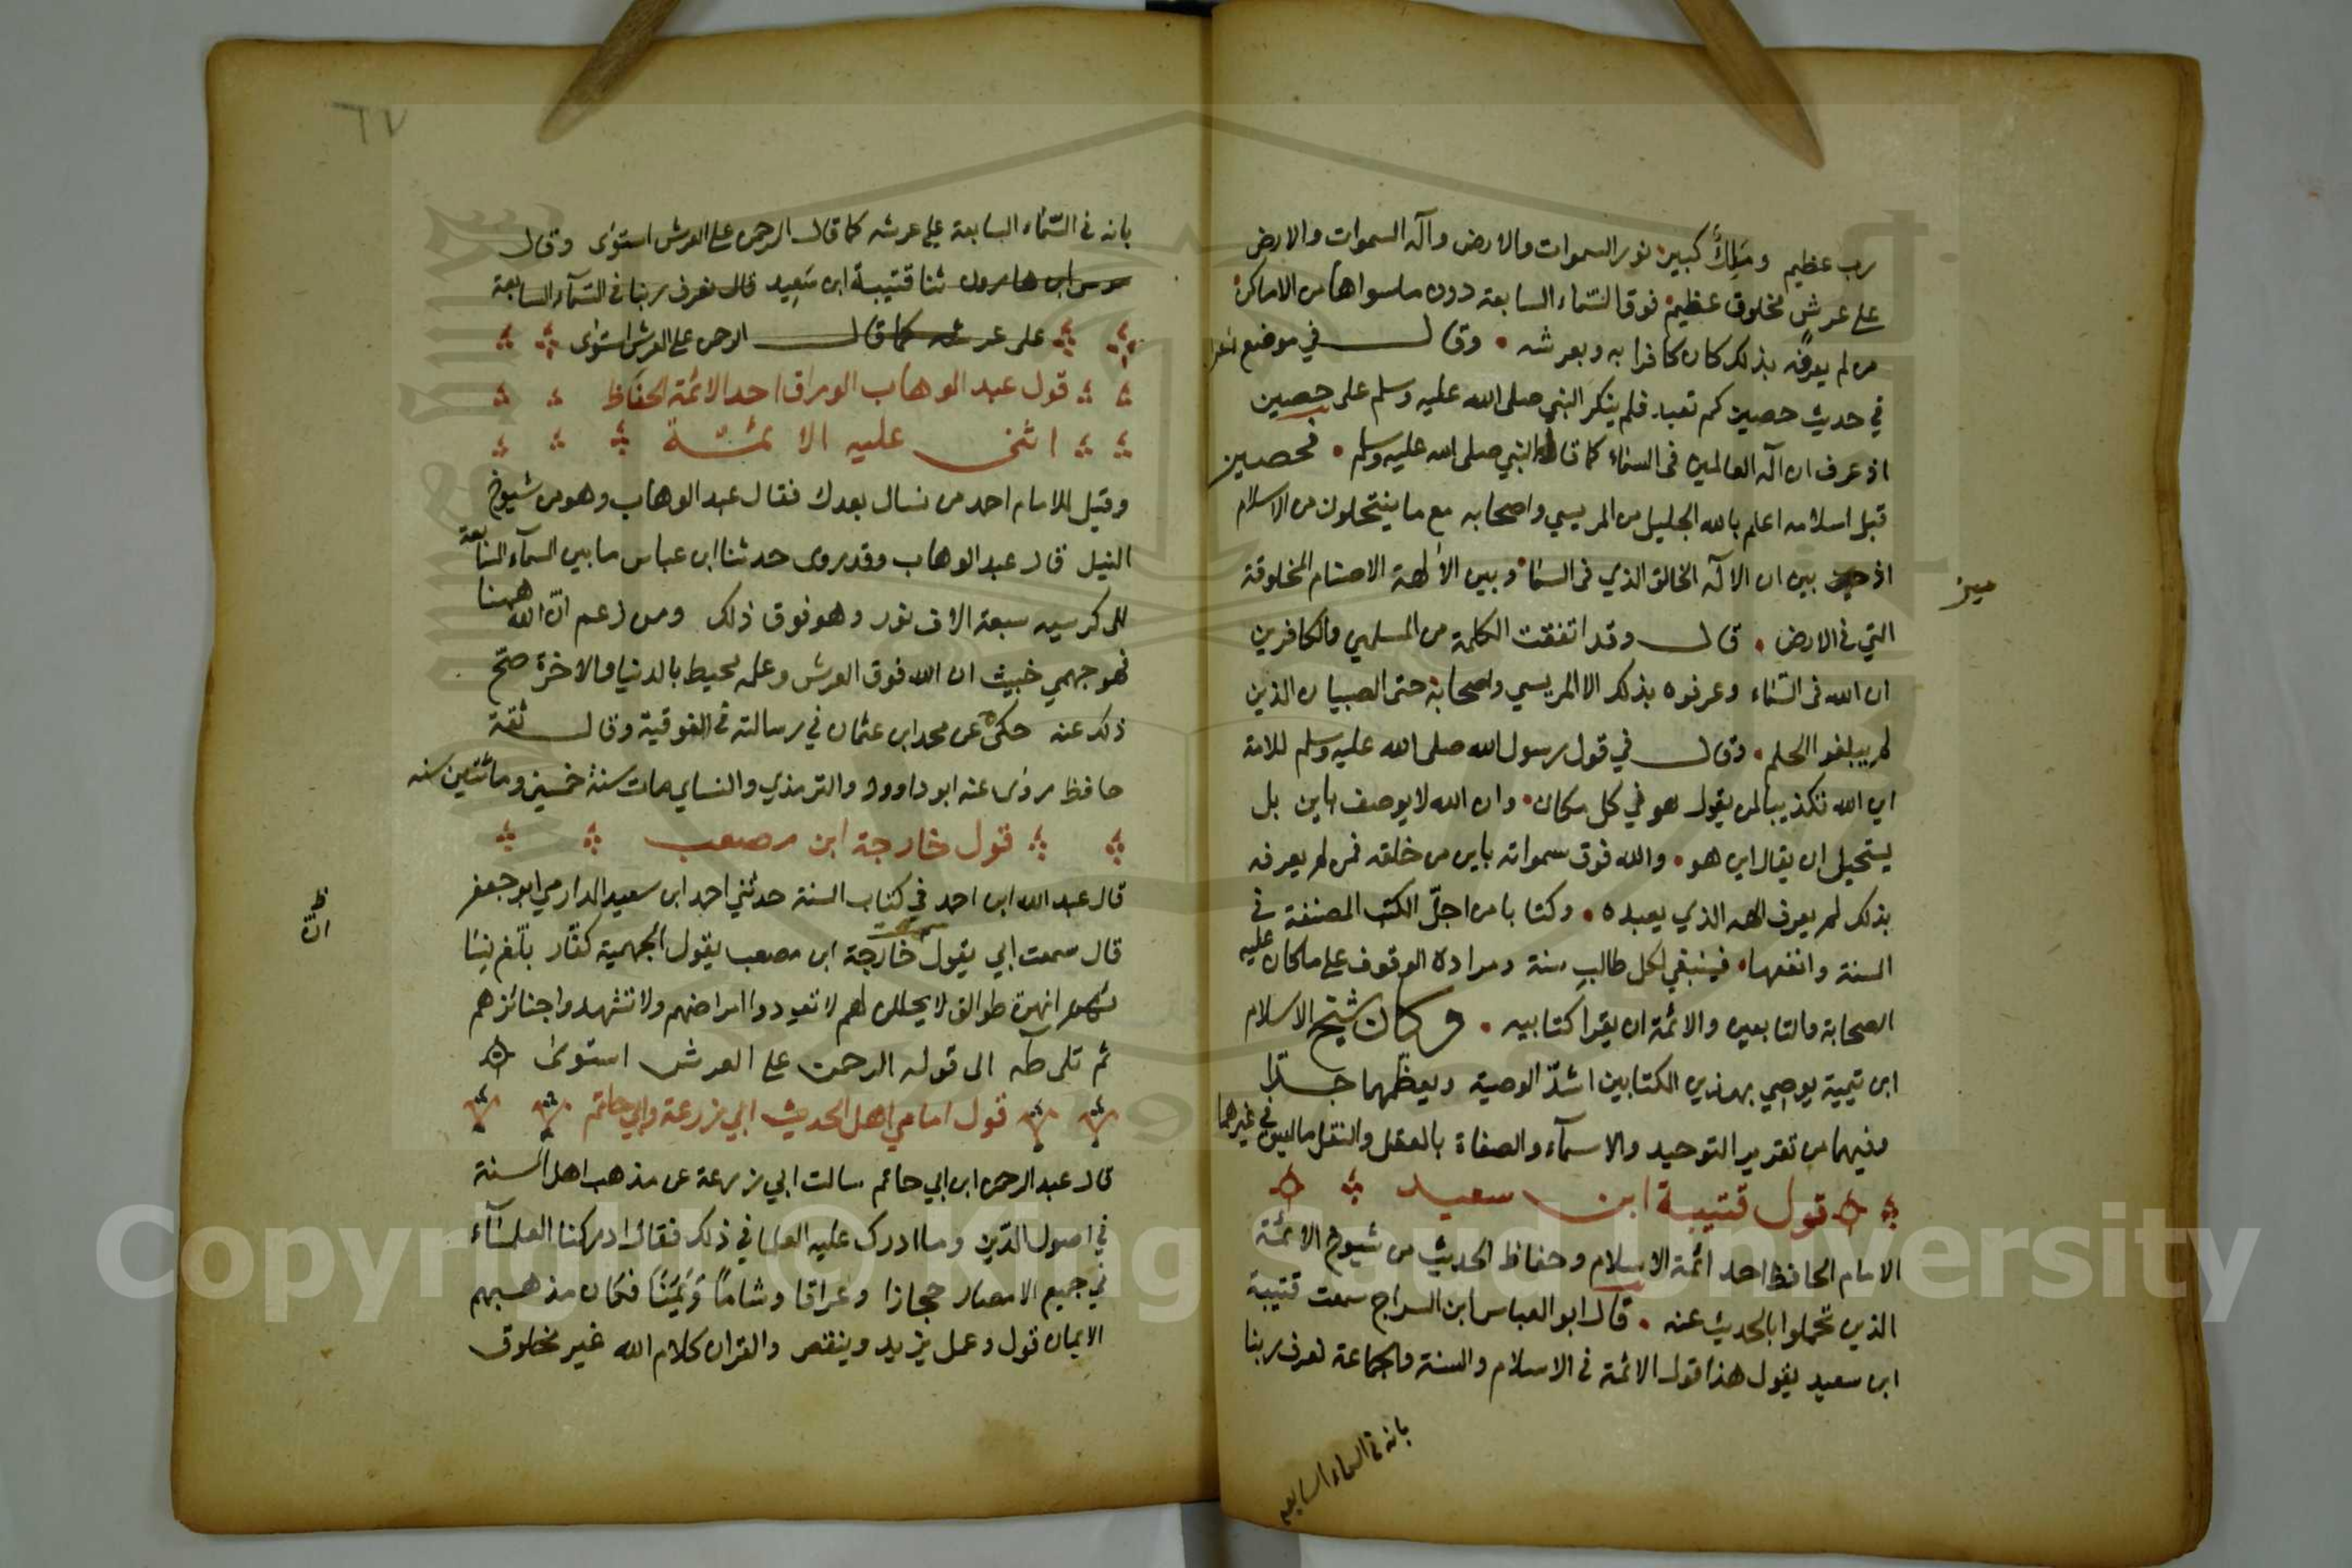 رب عظيم وملك كبير نور السموات والارض وآله السموات والارض
على عرش مخلوق عظيم فوق السماء السابعة دون ما سواها من الاماكن
من لم يعرفه بذلك كان كافرا به وبعرشه وقال في موضع
في حديث حصين كم تعبد فلم ينكر النبي صلى الله عليه وسلم على حصين
اذ عرف ان آله العالمين في السماء كما قال النبي صلى الله عليه وسلم فحصين
قبل اسلامه اعلم بالله الجليل من المريسي واصحابه مع ما ينتحلون من الاسلام
اذ بين ان الاله الخالق الذي في السماء وبين الآلهة الاصنام المخلوقة
ميز
التي في الارض قال وقد اتفقت الكلمة من المسلمين والكافرين
ان الله في السماء وعرفوه بذلك الا المريسي واصحابه حتى الصبيان الذين
لم يبلغوا الحلم وقال في قول رسول الله صلى الله عليه وسلم للامة
اين الله تكذيبا لمن يقول هو في كل مكان وان الله لا يوصف باين بل
يستحيل ان يقال اين هو والله فوق سمواته باين من خلقه فمن لم يعرفه
بذلك لم يعرف الهه الذي يعبده وكتابا من اجل الكتب المصنفة في
السنة وانفعها فينبغي لكل طالب سنة ومراده الوقوف على ما كان عليه
الصحابة والتابعين والائمة ان يقرا كتابيه وكان شيخ الاسلام
ابن تيمية يوصي بهذين الكتابين اشد الوصية ويعظمهما جدا
وفيهما من تقرير التوحيد والاسمآء والصفاة بالعقل والنقل ما ليس في غيرهما
قول قتيبة ابن سعيد
الامام الحافظ احد ائمة الاسلام وحفاظ الحديث من شيوخ الائمة
الذين تحملوا بالحديث عنه قال ابو العباس ابن السراج سمعت قتيبة
ابن سعيد يقول هذا قول الائمة في الاسلام والسنة والجماعة نعرف ربنا
بانه في السماء السابعة
٦٧
بانه في السماء السابعة على عرشه كما قال الرحمن على العرش استوى وقال
موسى ابن هارون ثنا قتيبة ابن سعيد قال نعرف ربنا في السمآء السابعة
على عرشه كما قال الرحمن على العرش استوى
قول عبد الوهاب الوراق احد الائمة الحفاظ
اثنى عليه الائمة
وقيل للامام احمد من نسال بعدك فقال عبد الوهاب وهو من شيوخ
النيل قال عبد الوهاب وقد روى حدثنا ابن عباس ما بين السمآء السابعة
الى كرسيه سبعة الاف نور وهو فوق ذلك ومن زعم ان الله ههنا
فهو جهمي خبيث ان الله فوق العرش وعلمه محيط بالدنيا والاخرة صح
ذلك عنه حكى عن محمد ابن عثمان في رسالته في الفوقية وقال ثقة
حافظ روى عنه ابو داوود والترمذي والنساي مات سنة خمسين ومائتين سنه
قول خارجة ابن مصعب
قال عبد الله ابن احمد في كتاب السنة حدثني احمد ابن سعيد الدارمي ابو جعفر
قال سمعت ابي يقول سمعت خارجة ابن مصعب يقول الجهمية كفار بلغ نساءهم
انهن طوالق لا يحللن لهم لا تعودوا امراضهم ولا تشهدوا جنائزهم
ظ
ان
ثم تلى طه الى قوله الرحمن على العرش استوى
قول امامي اهل الحديث ابي زرعة وابي حاتم
قال عبد الرحمن ابن ابي حاتم سالت ابي زرعة عن مذهب اهل السنة
في اصول الدين وما ادرك عليه العلما في ذلك فقال ادركنا العلمآء
في جميع الامصار حجازا وعراقا وشاما ويمنا فكان مذهبهم
الايمان قول وعمل يزيد وينقص والقران كلام الله غير مخلوق
Copyright © King Saud University
1957